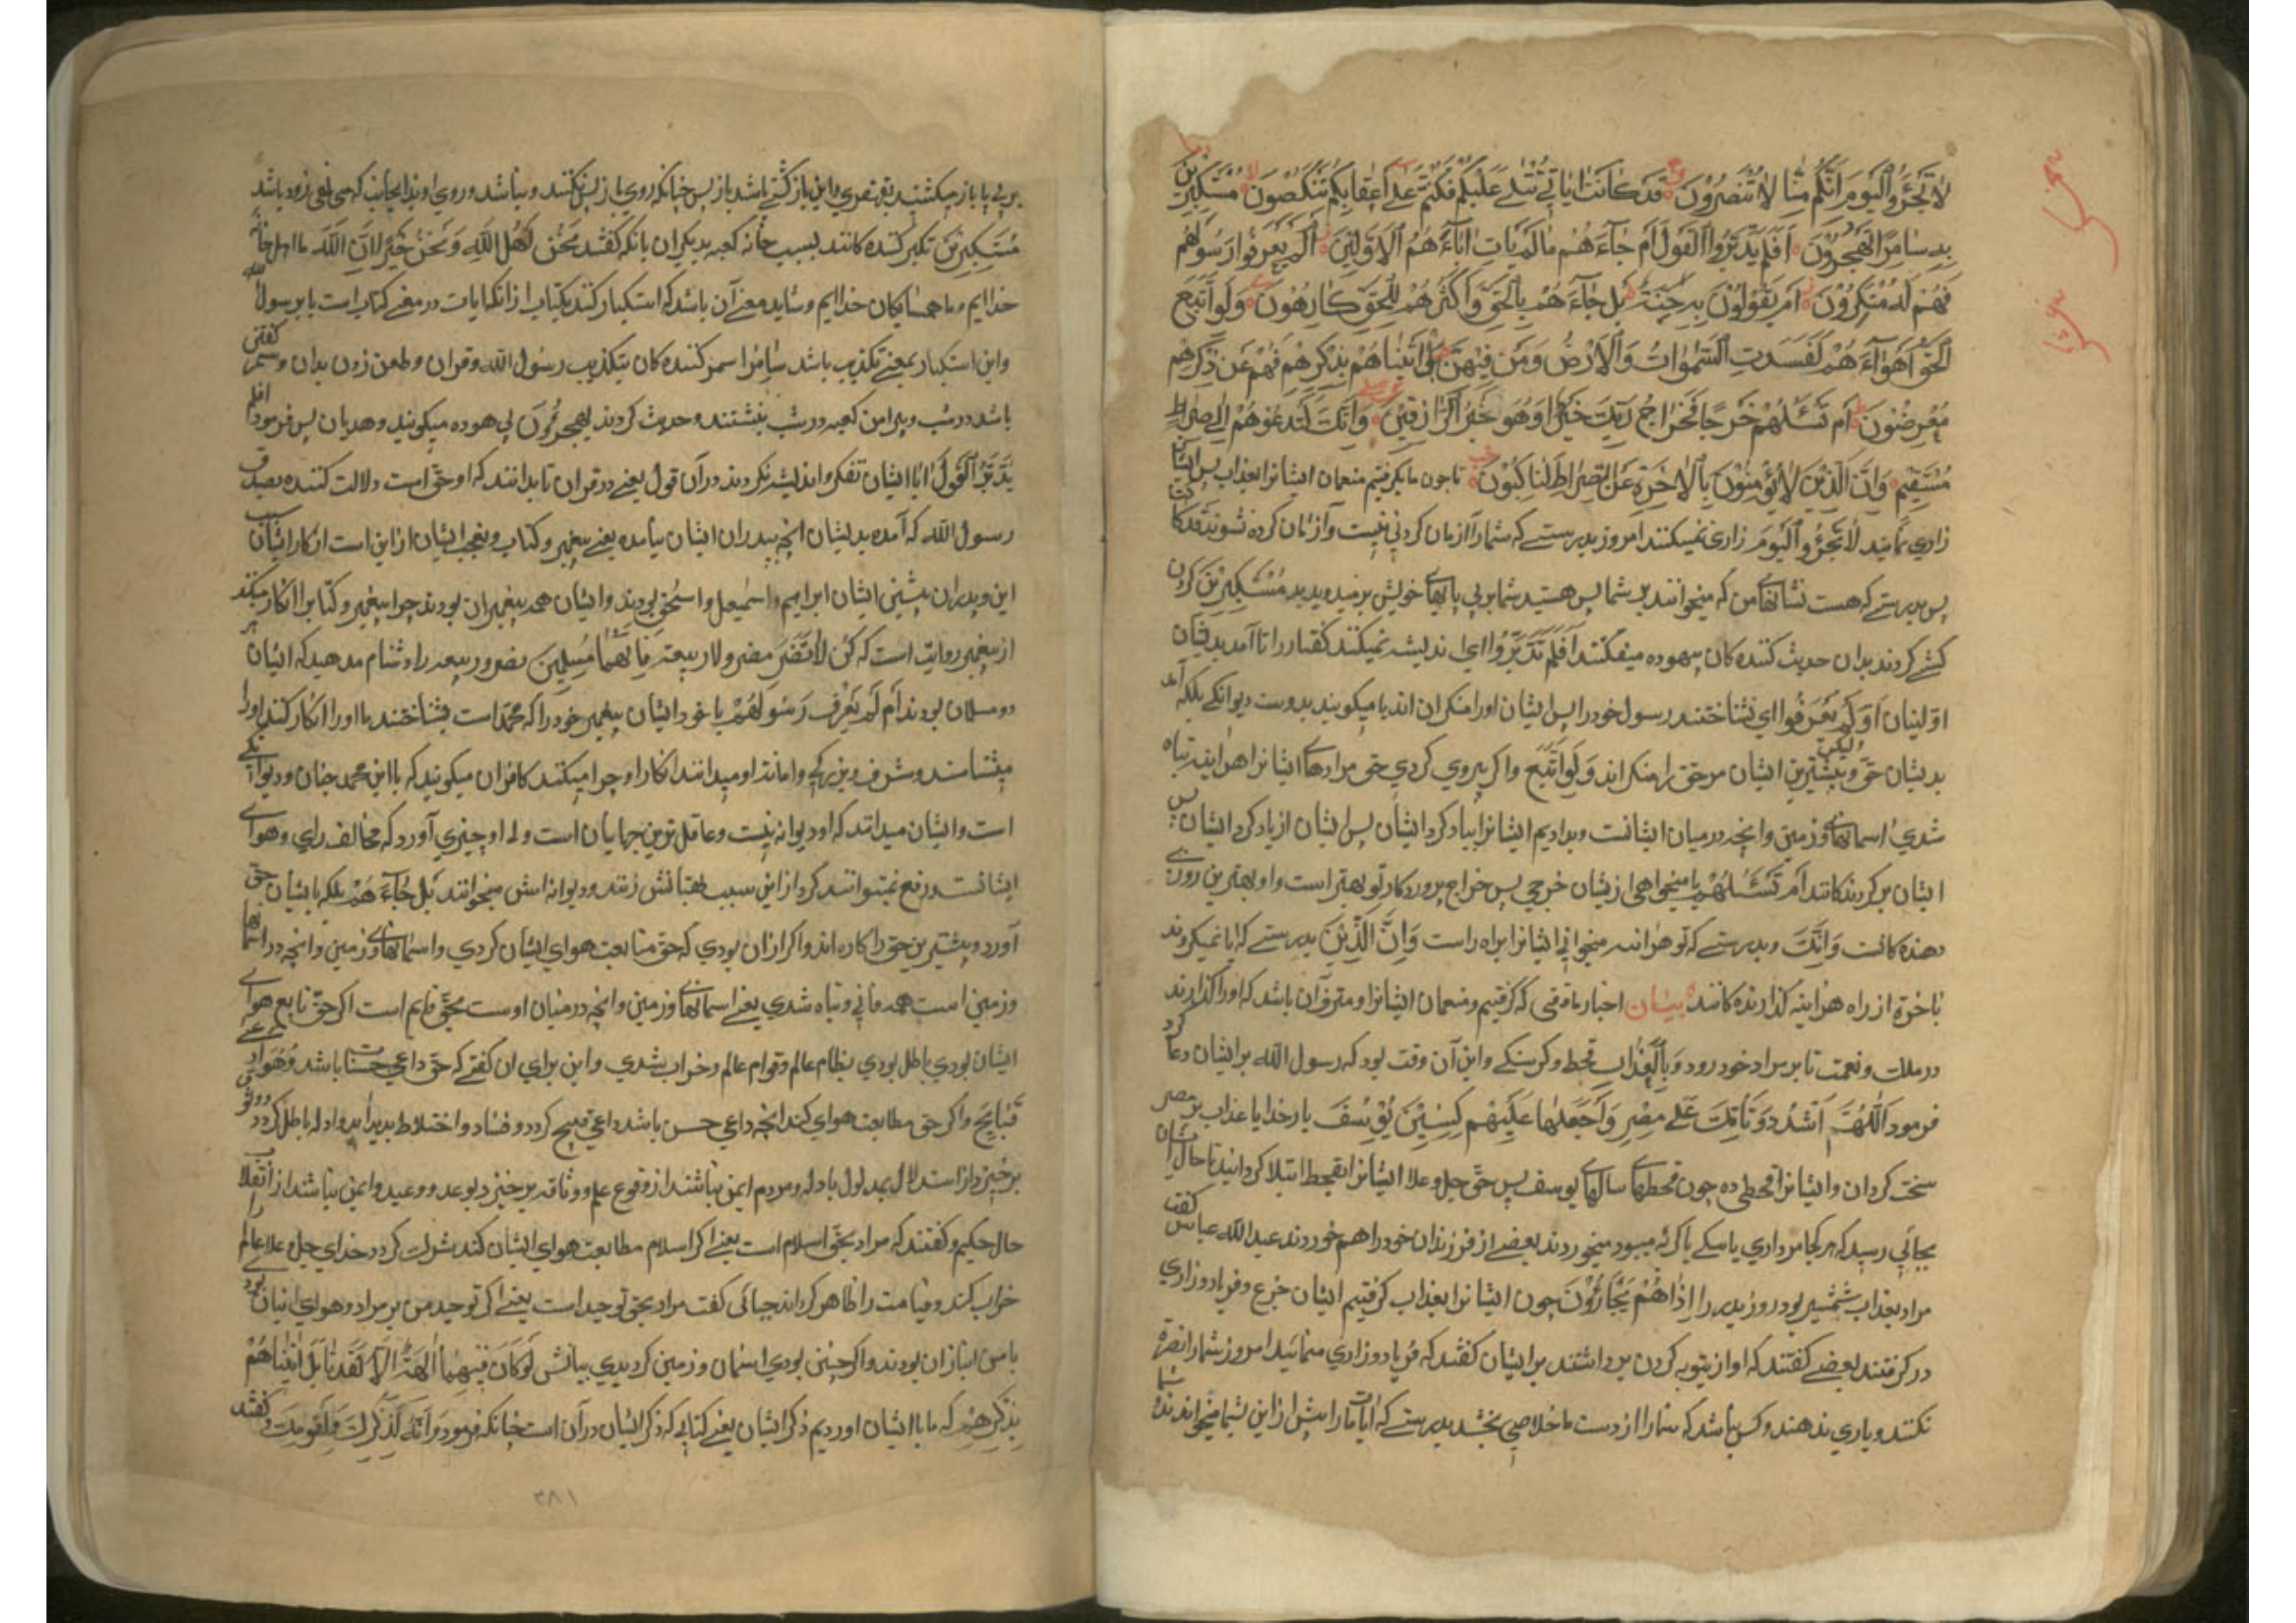 لَا تَجْئَرُوا الْيَوْمَ إِنَّكُمْ مِنَّا لَا تُنْصَرُونَ قَدْ كَانَتْ آيَاتِي تُتْلَى عَلَيْكُمْ فَكُنْتُمْ عَلَى أَعْقَابِكُمْ تَنْكِصُونَ مُسْتَكْبِرِينَ
بِهِ سَامِرًا تَهْجُرُونَ أَفَلَمْ يَدَّبَّرُوا الْقَوْلَ أَمْ جَاءَهُمْ مَا لَمْ يَأْتِ آبَاءَهُمُ الْأَوَّلِينَ أَمْ لَمْ يَعْرِفُوا رَسُولَهُمْ
فَهُمْ لَهُ مُنْكِرُونَ أَمْ يَقُولُونَ بِهِ جِنَّةٌ بَلْ جَاءَهُمْ بِالْحَقِّ وَأَكْثَرُهُمْ لِلْحَقِّ كَارِهُونَ وَلَوِ اتَّبَعَ
الْحَقُّ أَهْوَاءَهُمْ لَفَسَدَتِ السَّمَوَاتُ وَالْأَرْضُ وَمَنْ فِيهِنَّ بَلْ أَتَيْنَاهُمْ بِذِكْرِهِمْ فَهُمْ عَنْ ذِكْرِهِمْ
مُعْرِضُونَ أَمْ تَسْئَلُهُمْ خَرْجًا فَخَرَاجُ رَبِّكَ خَيْرٌ وَهُوَ خَيْرُ الرَّازِقِينَ وَإِنَّكَ لَتَدْعُوهُمْ إِلَى صِرَاطٍ
مُسْتَقِيمٍ وَإِنَّ الَّذِينَ لَا يُؤْمِنُونَ بِالْآخِرَةِ عَنِ الصِّرَاطِ لَنَاكِبُونَ تا چون ما بگرفتیم منعمان ایشانرا بعذاب پس ایشان
زاری نمایند لَا تَجْئَرُوا الْيَوْمَ زاری نمیکنند امروز بدرستی که شمارا از مان کردنی نیست و از مان کرده نشوند قد کا
پس بدرستی که هست نشانهای من که میخوانند بر شما پس هستید شما بر پی پایهای خویش برمیدویدید مُسْتَكْبِرِينَ کردن
کشی کردند بدان حدیث کننده کان بیهوده میفکنند أَفَلَمْ يَدَّبَّرُوا ای اندیشه نمیکنند گفتار را تا آمد بدیشان
اولینان أَوْ لَمْ يَعْرِفُوا ای نشناختند رسول خود را پس ایشان اورا منکران اند یا میگویند بدوست دیوانگی بلکه آمد
بدیشان حق و بیشترین ایشان مر حق را منکر اند وَلَوِ اتَّبَعَ و اگر پیروی کردی حق مرادهای ایشانرا هر آینه تباه
شدی اسمانهای و زمین و انچه در میان ایشانست و بدادیم ایشانرا بیاد کرد ایشان پس ایشان از یاد کرد ایشان
ایشان برگردندکانند أَمْ تَسْئَلُهُمْ یا میخواهی ازیشان خرجی پس خراج پروردکار تو بهتر است و او بهترین روزی
دهنده کانست وَإِنَّكَ و بدرستی که تو هر اینه میخوانی ایشانرا براه راست وَإِنَّ الَّذِينَ بدرستی که ایا نمیگروند
باخرة از راه هر اینه گذارنده کانند بیان اخبار ما قضی که گرفتیم و منعمان ایشانرا و مترفان باشد که اورا گذارند
در ملک و نعمت تا بر مراد خود رود وَبِالْعَذَابِ قحط و گرسنگی و این آن وقت بود که رسول الله بر ایشان دعا کرد
فرمود اللَّهُمَّ اشْدُدْ وَطْأَتَكَ عَلَى مُضَرٍ وَاجْعَلْهَا عَلَيْهِمْ كَسِنِينَ يُوسُفَ بار خدایا عذاب بر مضر
سخت گردان و ایشانرا قحطی ده چون قحطهای سالهای یوسف پس حق جل و علا ایشانرا بقحط ابتلا گردانید تا حال ایشان
بجائی رسید که هر کجا مرداری یا سکی یا گربه میبود میخوردند بعضی از فرزندان خود را هم خوردند عبدالله عباس گفت
مراد بعذاب شمشیر بود روز بدر را إِذَا هُمْ يَجْأَرُونَ چون ایشانرا بعذاب گرفتیم ایشان جزع و فریاد و زاری
در گرفتند بعضی گفتند که اواز بتوبه کردن برداشتند بر ایشان گفتند که فریاد و زاری منمائید امروز شمارا نصرة
نکنند و یاری ندهند و کس نباشد که شمارا از دست ما خلاصی بخشد بدرستی که ایات مارا پیش از این بشما میخواندند
بر پی پا باز میگشتید باز پس چنانکه روی باز پس نکنند و
مُسْتَكْبِرِينَ تکبر کننده کانند بسبب خانه کعبه بدیگران بانکه گفتند نَحْنُ أَهْلُ اللَّهِ وَنَحْنُ جِيرَانُ اللَّهِ ما اهل خانه
خدا ایم و ما همسایکان خدا ایم و شاید معنی آن باشد که استکبار کنند بکتاب از انکه ایات در معنی کتاب است یا برسول الله
و این استکبار بمعنی تکذیب باشد سَامِرًا سمر کننده کان بتکذیب رسول الله و قران و طعن زدن بدان و سمر گفتن
باشد در شب و پیرامن کعبه در شب بنشستند و حدیث کردند تَهْجُرُونَ بی هوده میگویند و هدیان پس فرمود أَفَلَمْ
يَدَّبَّرُوا الْقَوْلَ ایا ایشان تفکر و اندیشه نکردند در آن قول یعنی در قران تا بدانند که او حق است و دلالت کننده بصدق
رسول الله که آمده بدیشان انچه بپدران ایشان نیامده یعنی پیغمبر و کتاب و تعجب ایشان از این است انکار ایشان
این و پدران پیشین ایشان ابراهیم و اسمعیل و اسحق بودند و ایشان همه پیغمبران بودند چرا پیغمبر و کتابرا انکار میکنند
از پیغمبر روایت است که مضر و لا ربیعة فَإِنَّهُمَا مُسْلِمَيْنِ مضر و ربیعه را دشنام مدهید که ایشان
دو مسلمان بودند أَمْ لَمْ يَعْرِفُ رَسُولَهُمْ یا خود ایشان پیغمبر خود را که محمد است نشناختند تا اورا انکار کنند اورا
میشناسند و شرف و امانت او میدانند انکار او چرا میکنند کافران میگویند که با این محمد جنان و دیوانگی
است و ایشان میدانند که او دیوانه نیست و عاقل ترین جهانیان است وله او چیزی آورد که مخالف رای و هوای
ایشانست و دفع نمیتوانند کرد از این سبب بهتانش زنند و دیوانه اش میخوانند بَلْ جَاءَهُمْ بلکه بایشان حق
آورد و بیشترین حق را کاره اند و اگر ازان بودی که حق متابعت هوای ایشان کردی و اسمانهای و زمین و انچه در اسمانها
و زمین است همه فانی و تباه شدی یعنی اسمانهای و زمین و انچه در میان اوست بحق قایم است اگر حق تابع هوای
ایشان بودی باطل بودی نظام عالم و قوام عالم و خراب شدی و این برای ان گفتی که حق داعی حسنات باشد و هوا داعی
قبایح و اگر حق مطابعت هوای کند انچه داعی حسن باشد داعی قبیح گردد و فساد و اختلاط پدید اید و ادله باطل گردد
برخیزد از استدلال بمدلول بادله و مردم ایمن نباشند از وقوع علم و وثاقه برخیزد بوعد و وعید و ایمن نباشند از انقلاب
حال حکیم و گفتند که مراد بحق اسلام است یعنی اگر اسلام مطابعت هوای ایشان کند شرک گردد خدای جل و علا عالم را
خراب کند و قیامت را ظاهر گرداند جبائی گفت مراد بحق توحید است یعنی اگر توحید من بر مراد و هوای ایشان بود
با من انبازان بودند و اگر چنین بودی اسمان و زمین بیانش لَوْ كَانَ فِيهِمَا آلِهَةٌ إِلَّا لَفَسَدَتَا بَلْ أَتَيْنَاهُمْ
بِذِكْرِهِمْ که ما با ایشان اوردیم ذکر ایشان یعنی کتابی که ذکر ایشان در آن است چنانکه فرمود وَإِنَّهُ لَذِكْرٌ لَكَ وَلِقَوْمِكَ و گفتند
۳۸۱